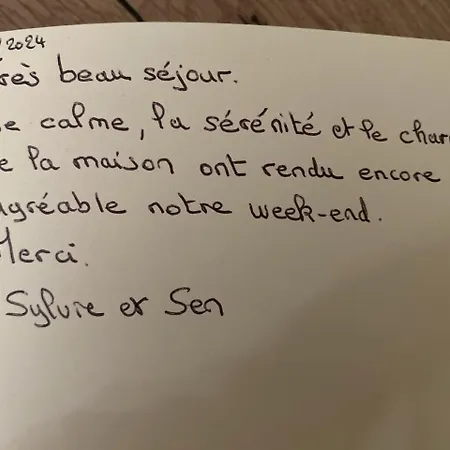 2024
rès beau séjour.
e calme, la sérénité et le char
e la maison ont rendu encore
agréable notre week-end.
Merci.
Sylvie et Sen